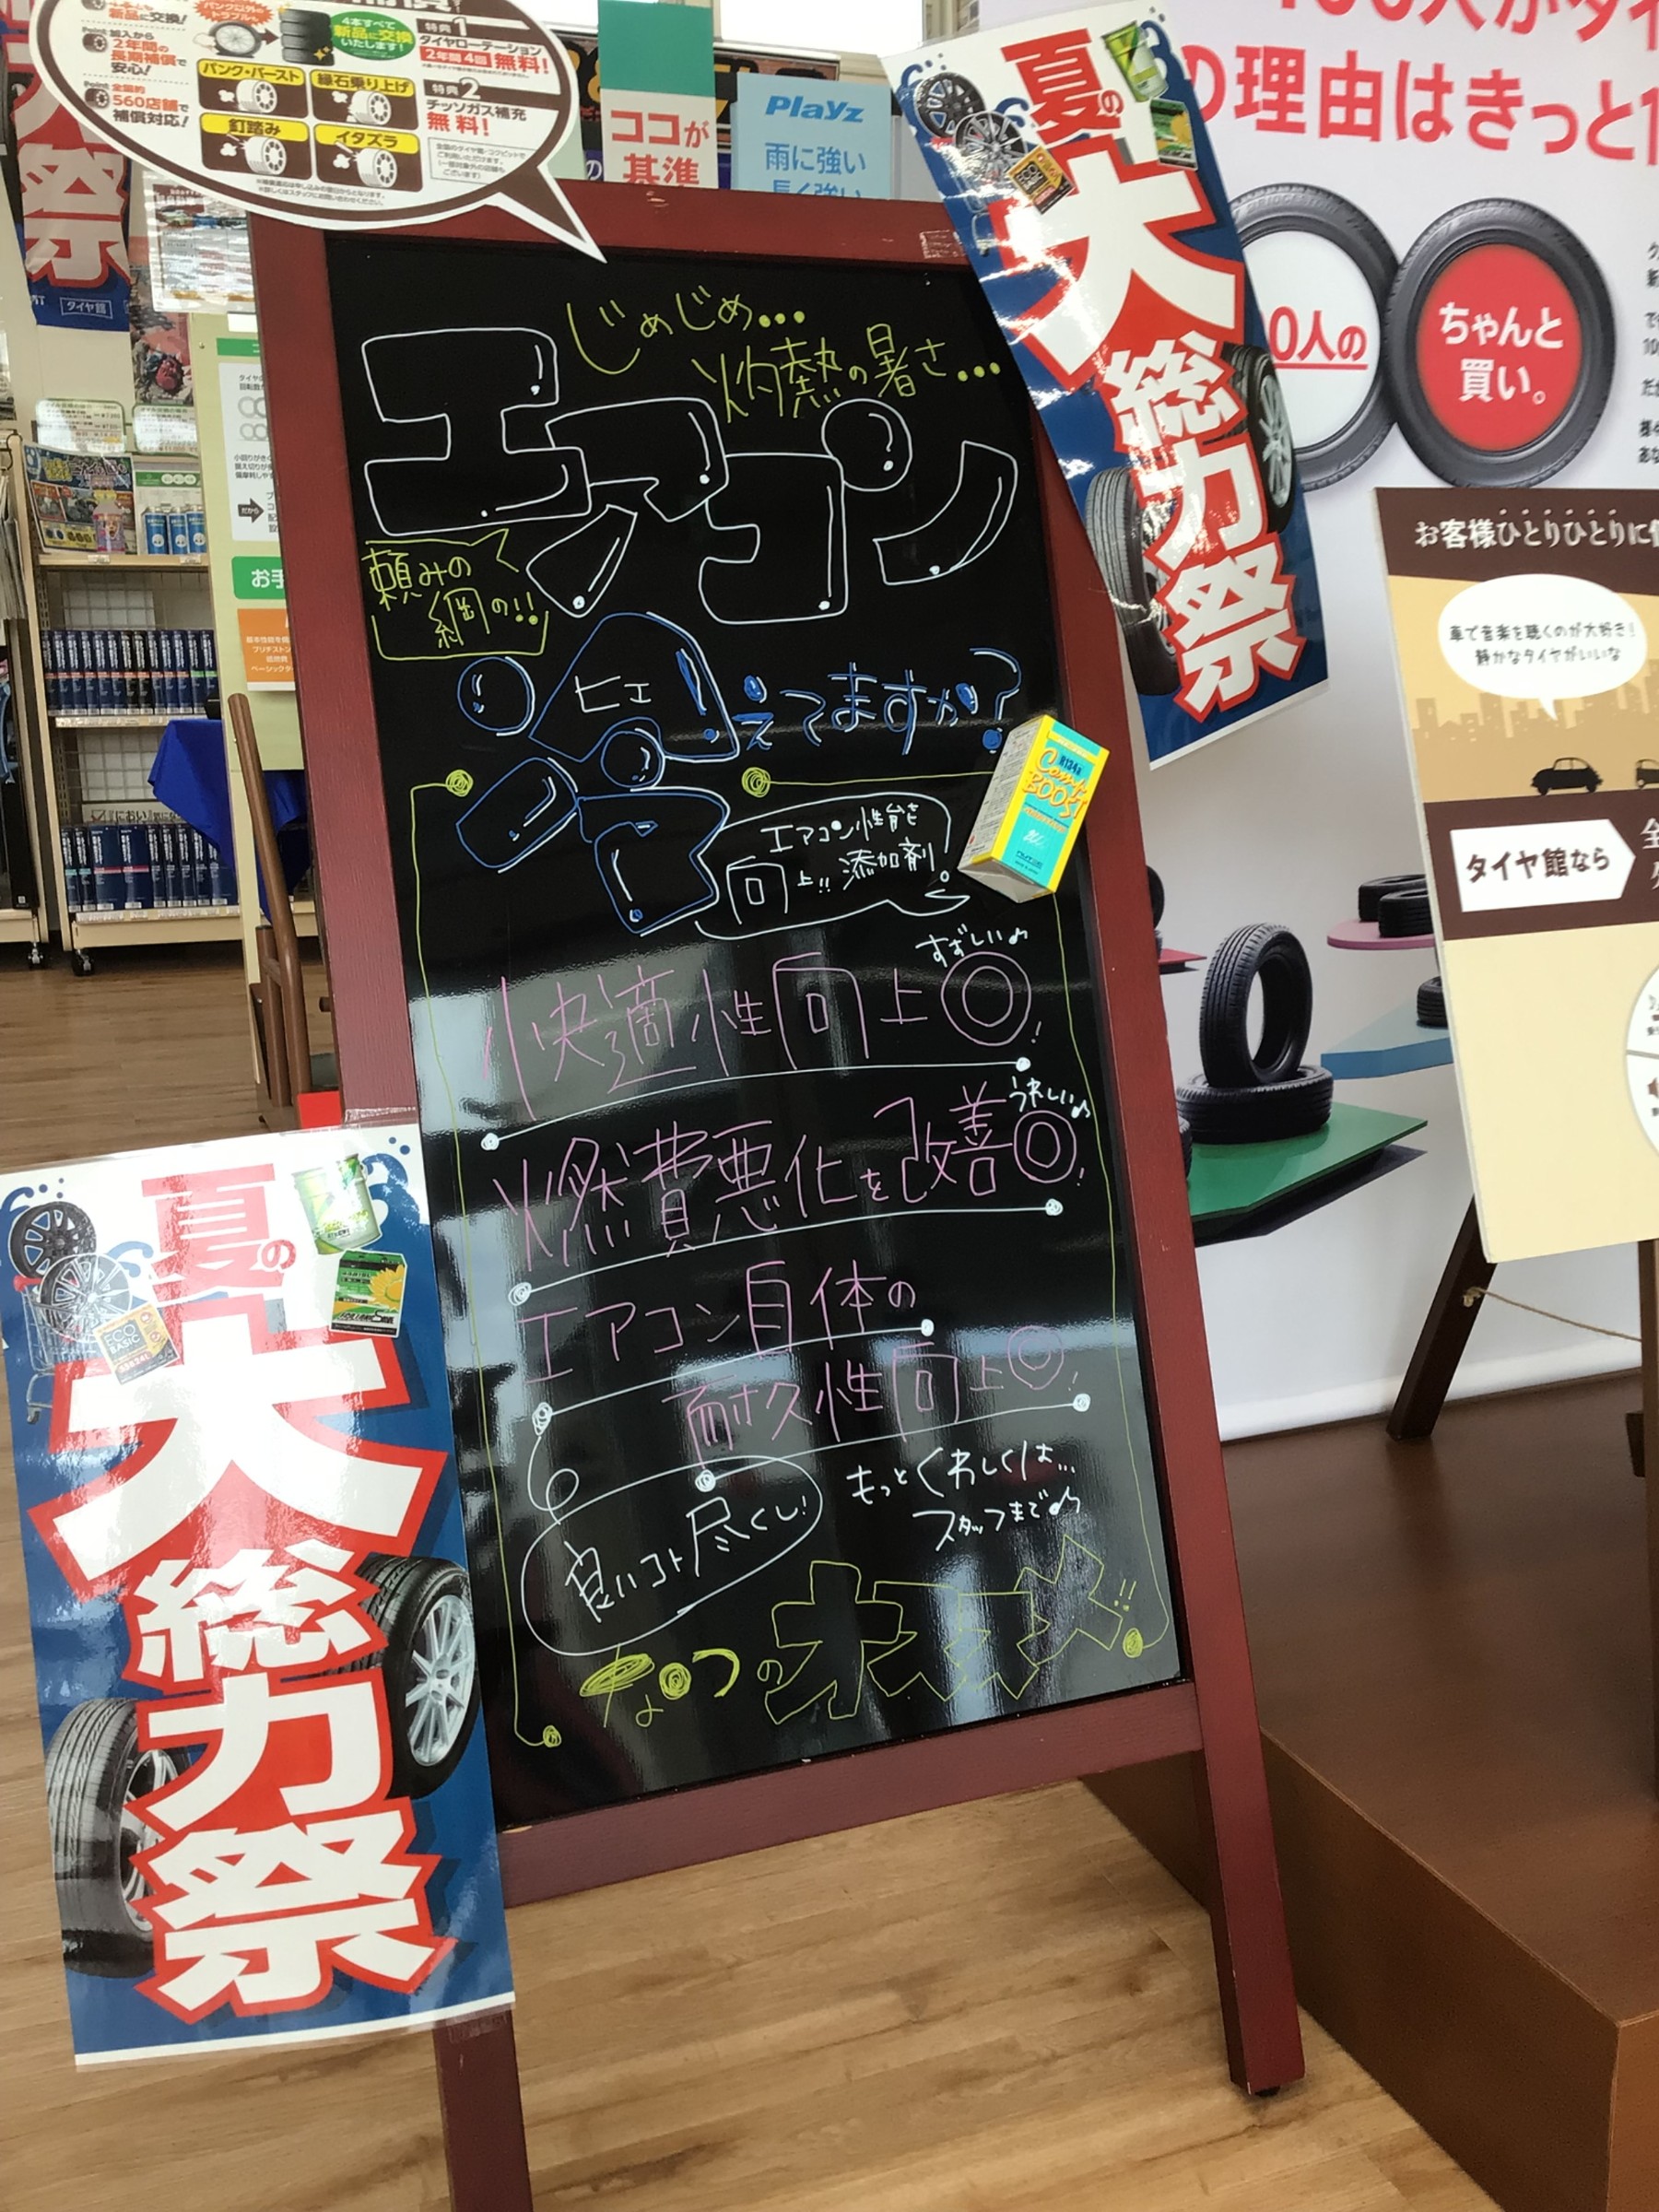 新品に交換!
Point
加入から
2年間の
長期補償で
安心!
Point
全国約
560店舗で
補償対応!
パンク以外の
トラブルも
4本すべて
新品に交換
いたします!
パンク・バースト
縁石乗り上げ
釘踏み
イタズラ
特典1
タイヤローテーション
2年間4回 無料!
特典2
チッソガス補充
無料!
ココが
基準
Playz
雨に強い
の理由はきっと1
0人の
ちゃんと
買い。
大
祭
タイヤ館
夏の
大
総
力
祭
じめじめ…
灼熱の暑さ…
エアコン
頼みの
綱の!!
ヒエ
冷えてますか?
冷
エアコン性能
向上!! 添加剤
R134a
BOOST
すずしい♪
快適性向上◎!
うれしい♪
燃費悪化を改善◎!
エアコン自体の
耐久性向上◎!
良いコト尽くし!
もっとくわしくは…
スタッフまで♪
なつのオススメ!!
夏の
大
総
力
祭
ECO
BASIC
お客様ひとりひとりに
車で音楽を聴くのが大好き!
静かなタイヤがいいな
タイヤ館なら